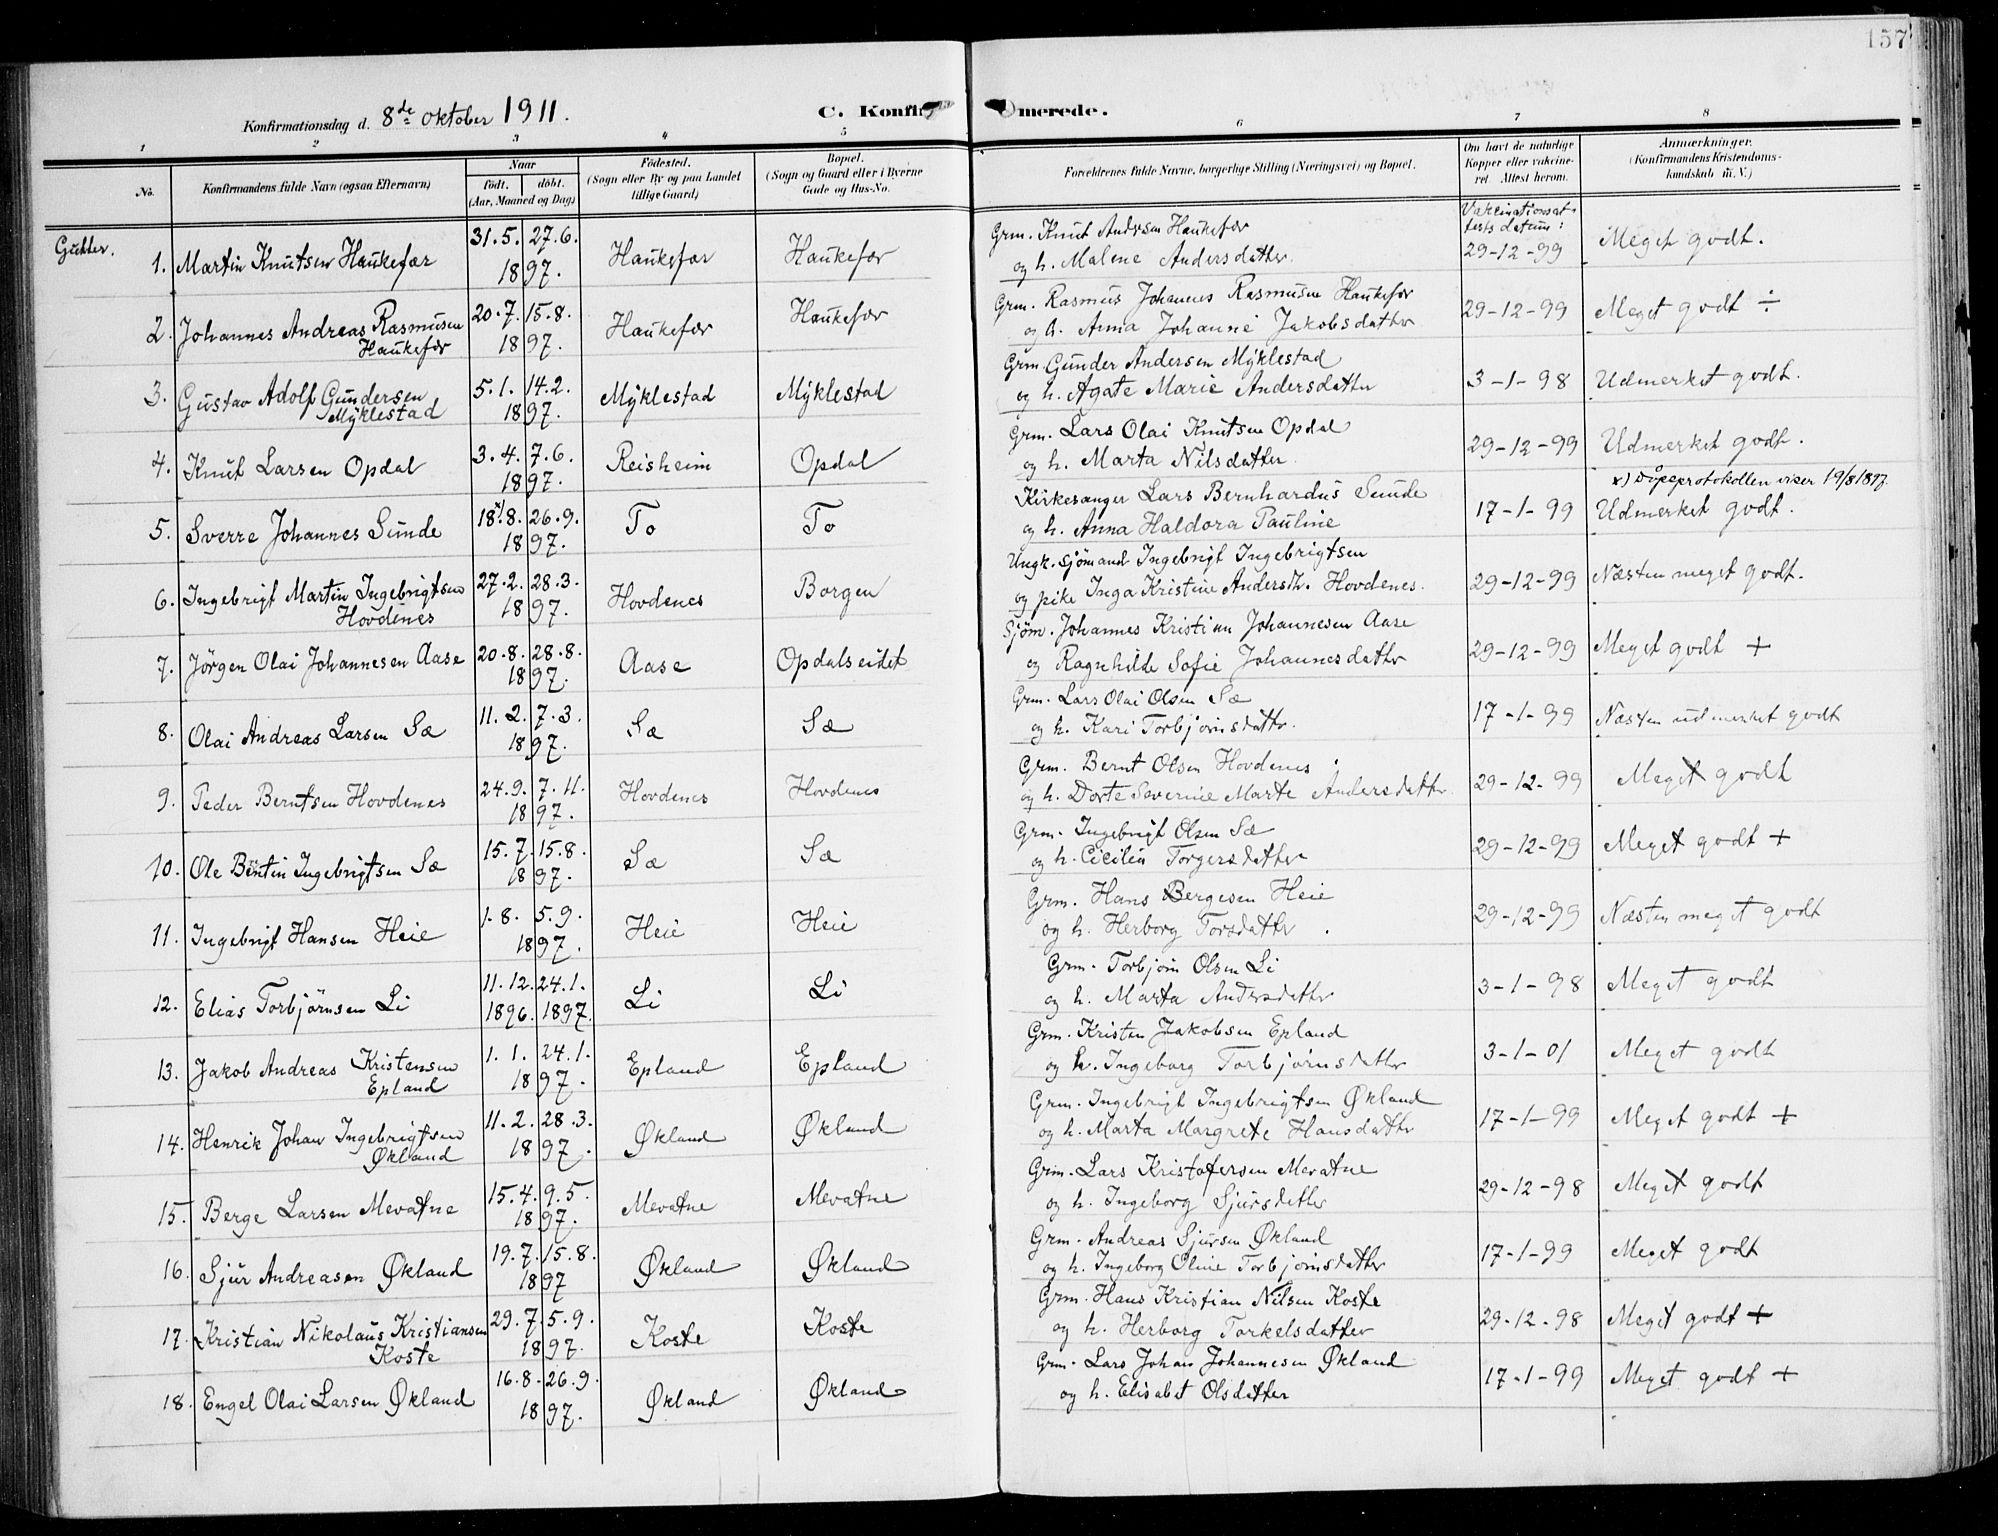 157
Konfirmationsdag d. 8de oktober 1911.
C. Konfirmerede.
1 2 3 4 5 6 7 8
No.
Konfirmandens fulde Navn (ogsaa Efternavn)
Naar
födt. döbt.
(Aar, Maaned og Dag)
Födested.
(Sogn eller By og paa Landet
tillige Gaard)
Bopæl.
(Sogn og Gaard eller i Byerne
Gade og Hus-No.
Forældrenes fulde Navne, borgerlige Stilling (Næringsvei) og Bopæl.
Om havt de naturlige
Kopper eller vakcine-
ret. Attest herom.
Anmærkninger.
(Konfirmandens Kristendoms-
kundskab m. V.)
Gutter.
1. Martin Knutsen Haukefær 31.5. 27.6. 1897. Haukefær Haukefær
Grm. Knut Andersen Haukefær
og h. Malene Andersdatter.
Vakcinationsat-
tests datum:
29-12-99 Meget godt.
2. Johannes Andreas Rasmusen
Haukefær 20.7. 15.8. 1897. Haukefær Haukefær
Grm. Rasmus Johannes Rasmusen Haukefær
og h. Anna Johanne Jakobsdatter 29-12-99 Meget godt ÷
3. Gustav Adolf Gundersen
Myklestad 5.1. 14.2. 1897. Myklestad Myklestad
Grm. Gunder Andersen Myklestad
og h. Agate Marie Andersdatter 3-1-98 Udmerket godt.
4. Knut Larsen Opdal 3.4. 7.6. 1897. Reisheim Opdal
Grm. Lars Olai Knutsen Opdal
og h. Marta Nilsdatter. 29-12-99 Udmerket godt.
x) Dåpsprotokollen viser 19/8 1897.
5. Sverre Johannes Sunde 18x).8. 26.9. 1897. To To
Kirkesanger Lars Bernhardus Sunde
og h. Anna Haldora Pauline 17-1-99 Udmerket godt.
6. Ingebrigt Martin Ingebrigtsen
Hovdenes 27.2. 28.3. 1897. Hovdenes Borgen
Ungk. sjømand Ingebrigt Ingebrigtsen
og pike Inga Kristine Andersdt. Hovdenes. 29-12-99 Næsten meget godt.
7. Jörgen Olai Johannesen Aase 20.8. 28.8. 1897. Aase Opdalseidet
Sjøm. Johannes Kristian Johannesen Aase
og Ragnhilde Sofie Johannesdatter 29-12-99 Meget godt +
8. Olai Andreas Larsen Sæ 11.2. 7.3. 1897. Sæ Sæ
Grm. Lars Olai Olsen Sæ
og h. Kari Torbjørnsdattr. 17-1-99 Næsten udmerket godt
9. Peder Berntsen Hovdenes 24.9. 7.11. 1897. Hovdenes Hovdenes
Grm. Bernt Olsen Hovdenes
og h. Dorte Severine Marte Andersdatter. 29-12-99 Meget godt
10. Ole Bentin Ingebrigtsen Sæ 15.7. 15.8. 1897. Sæ Sæ
Grm. Ingebrigt Olsen Sæ
og h. Cicilia Torgersdatter 29-12-99 Meget godt +
11. Ingebrigt Hansen Heie 1.8. 5.9. 1897. Heie Heie
Grm. Hans Bergesen Heie
og h. Herborg Torsdattr. 29-12-99 Næsten meget godt
12. Elias Torbjørnsen Li 11.12. 24.1. 1896. 1897. Li Li
Grm. Torbjørn Olsen Li
og h. Marta Andersdattr 3-1-98 Meget godt
13. Jakob Andreas Kristensen
Epland 1.1. 24.1. 1897. Epland Epland
Grm. Kristen Jakobsen Epland
og h. Ingeborg Torbjørnsdattr 3-1-01 Meget godt
14. Henrik Johan Ingebrigtsen
Økland 11.2. 28.3. 1897. Økland Økland
Grm. Ingebrigt Ingebrigtsen Økland
og h. Marta Margrete Hansdattr 17-1-99 Meget godt +
15. Berge Larsen Mevatne 15.4. 9.5. 1897. Mevatne Mevatne
Grm. Lars Kristofersen Mevatne
og h. Ingeborg Sjursdattr 29-12-98 Meget godt
16. Sjur Andreasen Økland 19.7. 15.8. 1897 Økland Økland
Grm. Andreas Sjursen Økland
og h. Ingeborg Oline Torbjørnsdatter 17-1-99 Meget godt
17. Kristian Nikolaus Kristiansen
Koste 29.7. 5.9. 1897. Koste Koste
Grm. Hans Kristian Nilsen Koste
og h. Herborg Torkelsdatter 29-12-98 Meget godt +
18. Engel Olai Larsen Økland 16.8. 26.9. 1897. Økland Økland
Grm. Lars Johan Johannesen Økland
og h. Elisabet Olsdatter 17-1-99 Meget godt +